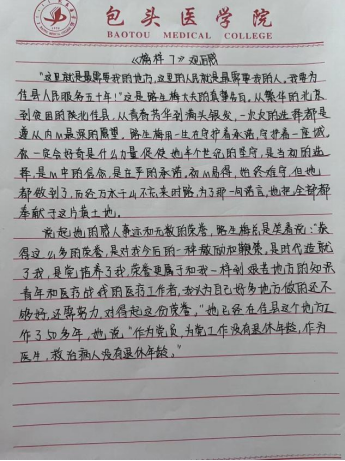 包头医学院
BAOTOU MEDICAL COLLEGE
《榜样7》观后感
"这里就是最需要我的地方,这里的人民就是最需要我的人。我要为
佳县人民服务五十年!"这是路生梅大夫的真挚告白。从繁华的北京
到贫困的陕北佳县,从青春芳华到满头银发,一次次的选择都是
遵从内心最深的愿望。路生梅用一生在守护着承诺,守护着一座城。
你一定会好奇是什么力量促使她半个世纪的坚守,是当初的选
择,是心中的信念,是立下的承诺,初心易得,始终难守,但她
都做到了,历经万水千山不忘来时路,为了那一句诺言,她把全部都
奉献于这片黄土地。
说起她的感人事迹和无数的荣誉,路生梅总是笑着说:"获
得这么多的荣誉,是对我今后的一种激励和鞭策,是时代造就
了我,是党培养了我,荣誉更属于和我一样到艰苦地方的知识
青年和医疗战线的医疗工作者,我认为自己好多地方做的还不
够好,还需努力,对得起这份荣誉。"她已经在佳县这个地方工
作了50多年,她说"作为党员,为党工作没有退休年龄,作为
医生,救治病人没有退休年龄。"